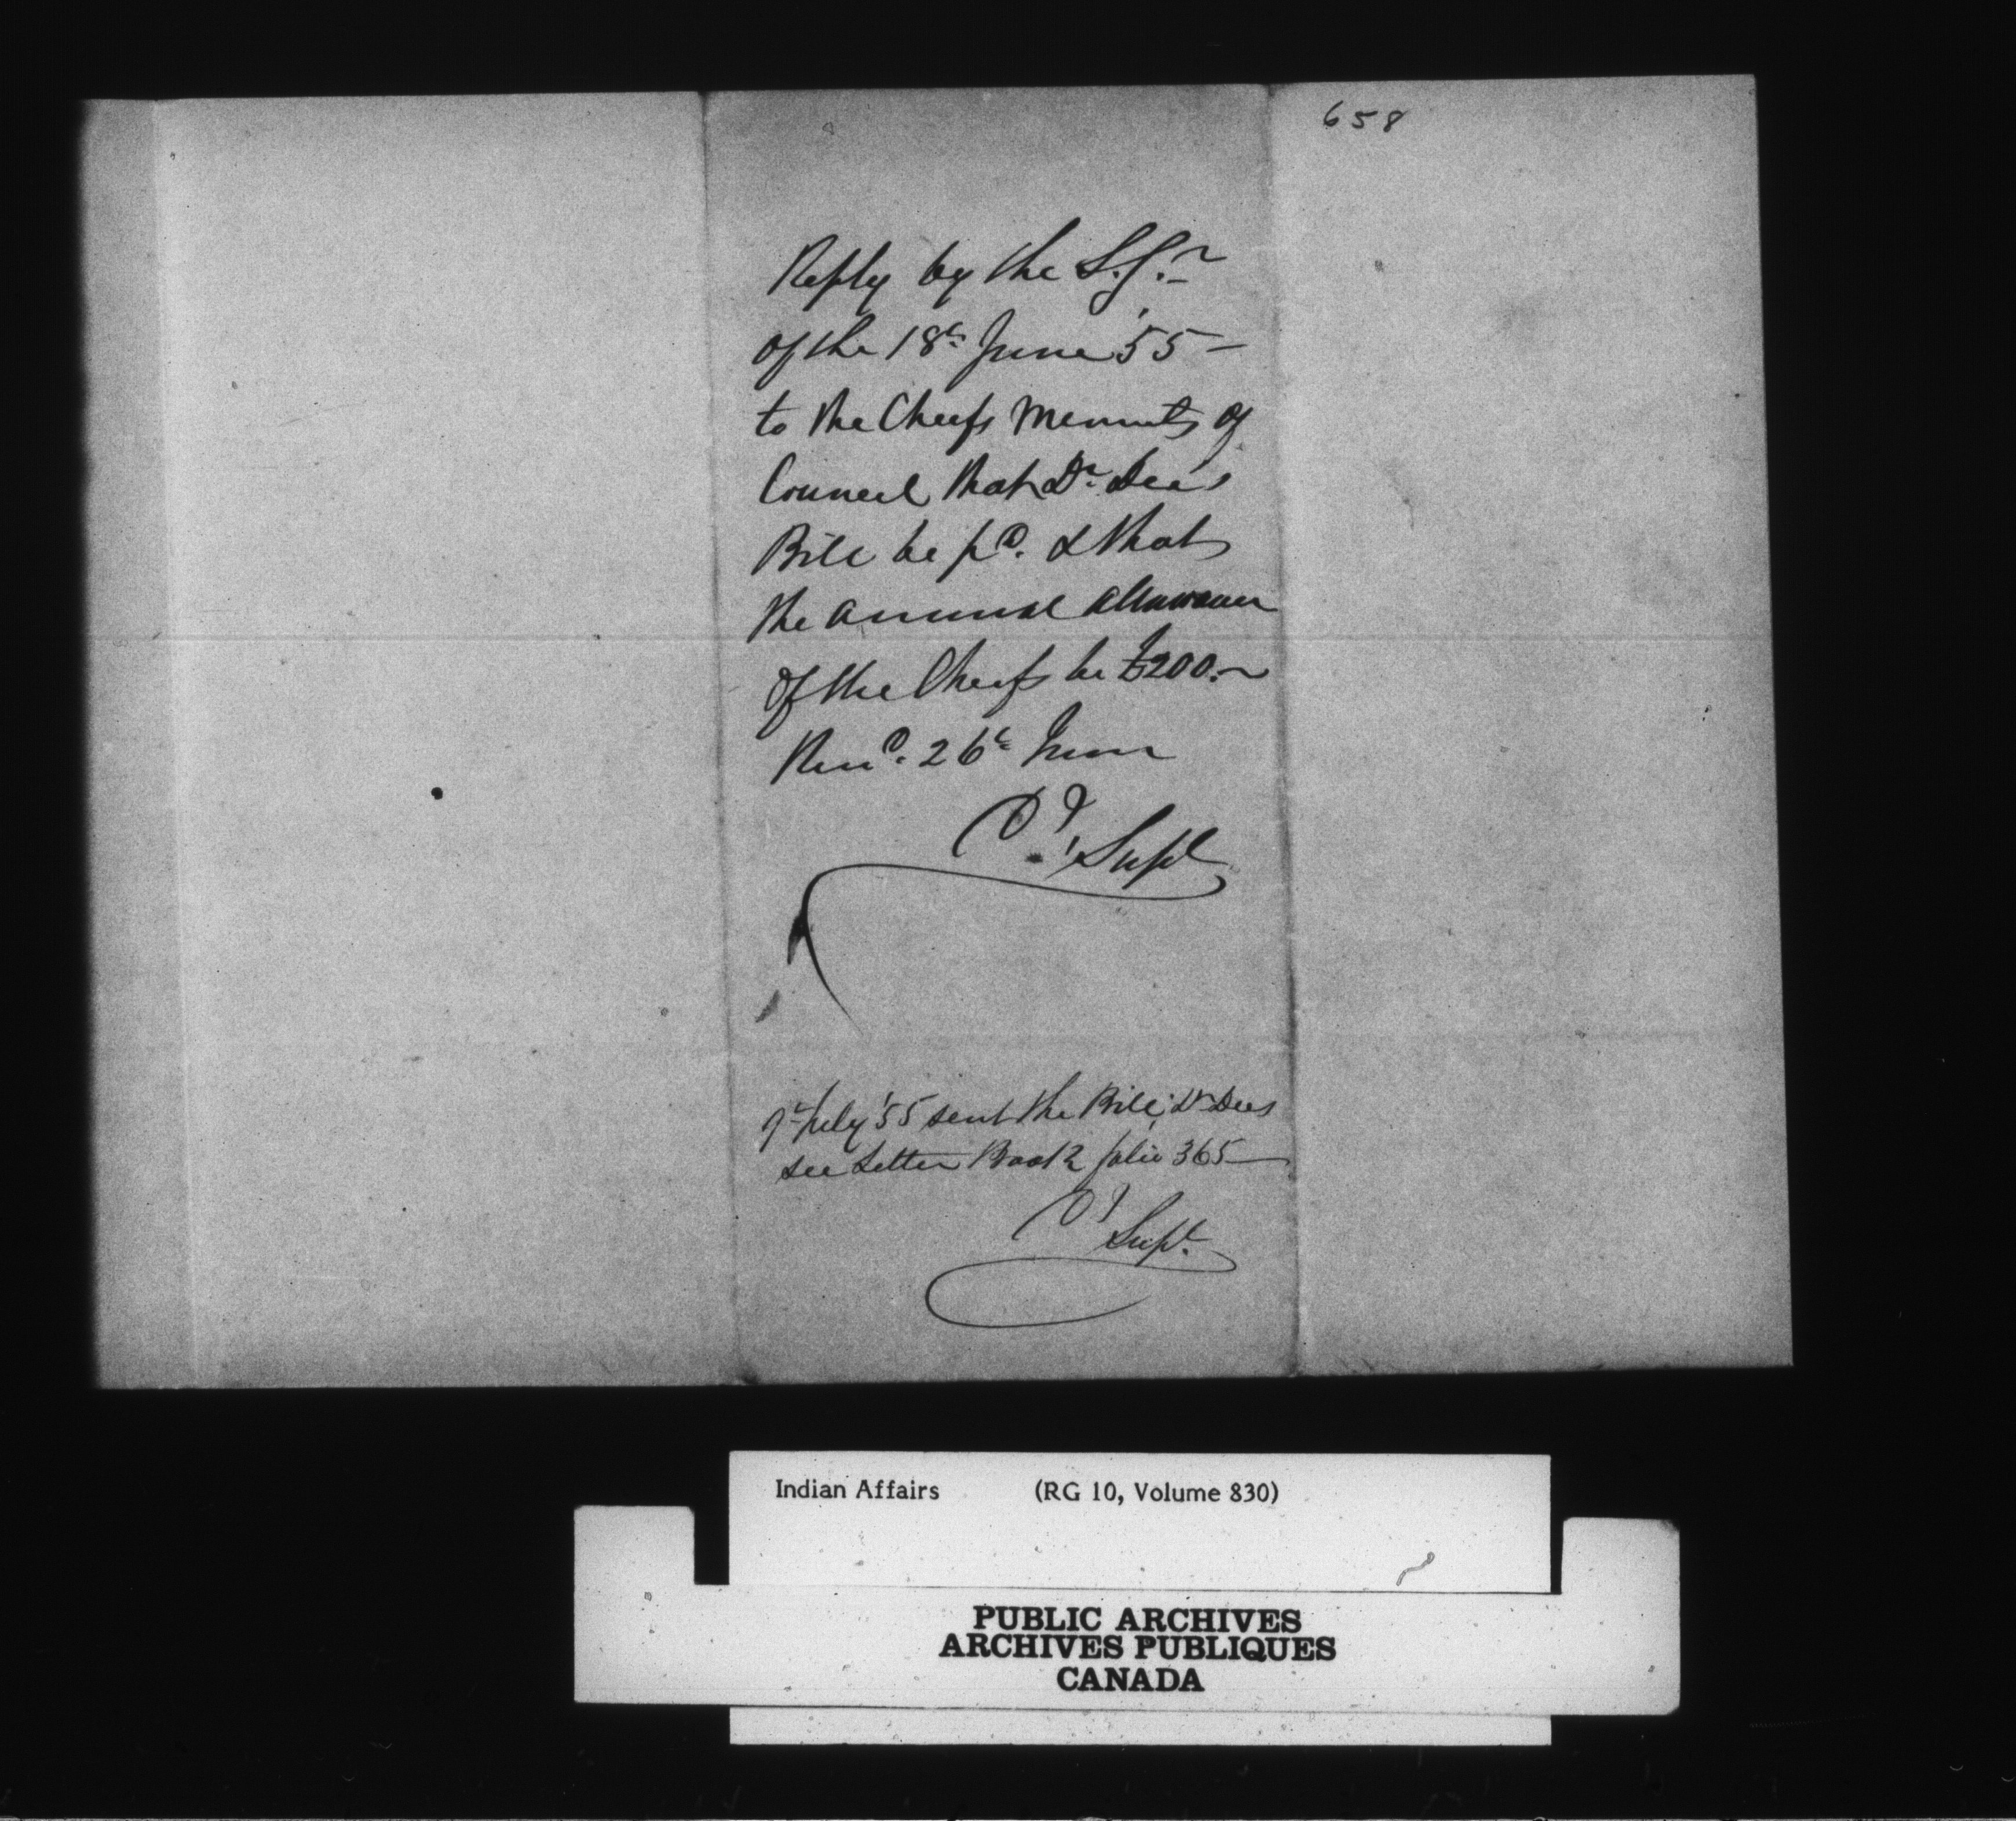 658
Reply by the S. G.
of the 18th June '55 —
to the Cheefs Menuits of
Council that Dr. Dee's
Bill be pd. & that
the annual allowance
of the Cheefs be £200.—
Recd. 26th June
Supt
9th July '55 sent the Bill, Dr Dees
see Letter Book 2 folio 365 —
Supt.
Indian Affairs (RG 10, Volume 830)
PUBLIC ARCHIVES
ARCHIVES PUBLIQUES
CANADA